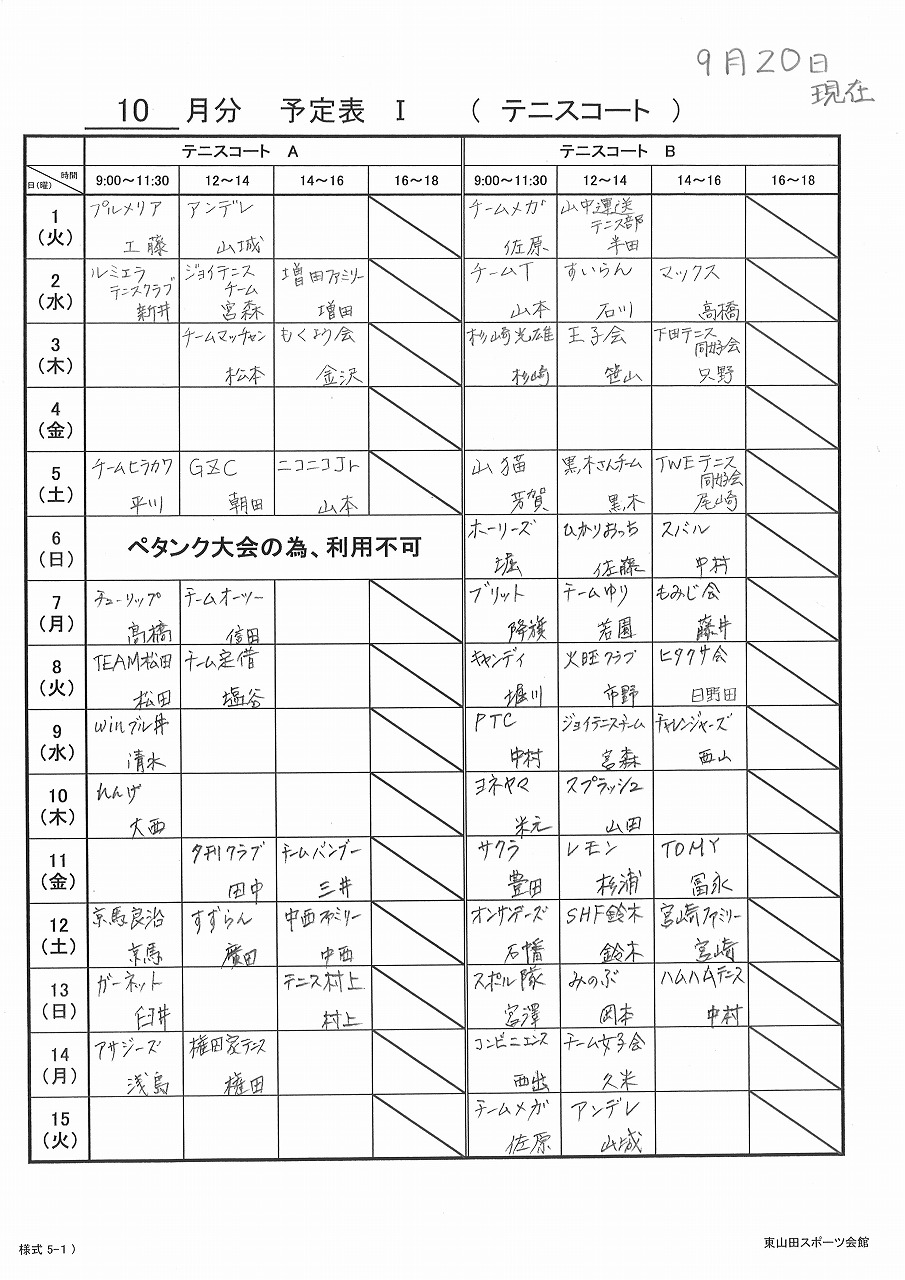 9月20日
現在
10 月分 予定表 Ⅰ ( テニスコート )
テニスコート A テニスコート B
時間
日(曜)
9:00～11:30 12～14 14～16 16～18 9:00～11:30 12～14 14～16 16～18
1
(火)
プルメリア
工藤
アンデレ
山城
チームメガ
佐原
山中運送
テニス部
半田
2
(水)
ルミエラ
テニスクラブ
新井
ジョイテニス
チーム
宮森
増田ファミリー
増田
チームT
山本
すいらん
石川
マックス
高橋
3
(木)
チームマッチャン
松本
もくよう会
金沢
杉崎光雄
杉崎
王子会
笹山
下田テニス
同好会
只野
4
(金)
5
(土)
チームヒラカワ
平川
GZC
朝田
ニコニコJr
山本
山猫
芳賀
黒木さんチーム
黒木
TWEテニス
同好会
尾崎
6
(日)
ペタンク大会の為、利用不可
ホーリーズ
堀
ひかりおっち
佐藤
スバル
中村
7
(月)
チューリップ
高橋
チームオーツー
信田
ブリット
降旗
チームゆり
若園
もみじ会
藤井
8
(火)
TEAM松田
松田
チーム定借
塩谷
キャンディ
堀川
火旺クラブ
市野
ヒタクサ会
日野田
9
(水)
winブル井
清水
PTC
中村
ジョイテニスチーム
宮森
チャレンジャーズ
西山
10
(木)
れんげ
大西
ヨネヤマ
米元
スプラッシュ
山田
11
(金)
夕刊クラブ
田中
チームバンブー
三井
サクラ
豊田
レモン
杉浦
TOMY
冨永
12
(土)
京馬良治
京馬
すずらん
廣田
中西ファミリー
中西
オンサンデーズ
石幡
SHF鈴木
鈴木
宮崎ファミリー
宮崎
13
(日)
ガーネット
臼井
テニス村上
村上
スポル隊
宮澤
みのぶ
岡本
ハムハムテニス
中村
14
(月)
アサジーズ
浅島
権田家テニス
権田
コンビニエンス
西出
チーム女子会
久米
15
(火)
チームメガ
佐原
アンデレ
山城
様式 5-1 )
東山田スポーツ会館